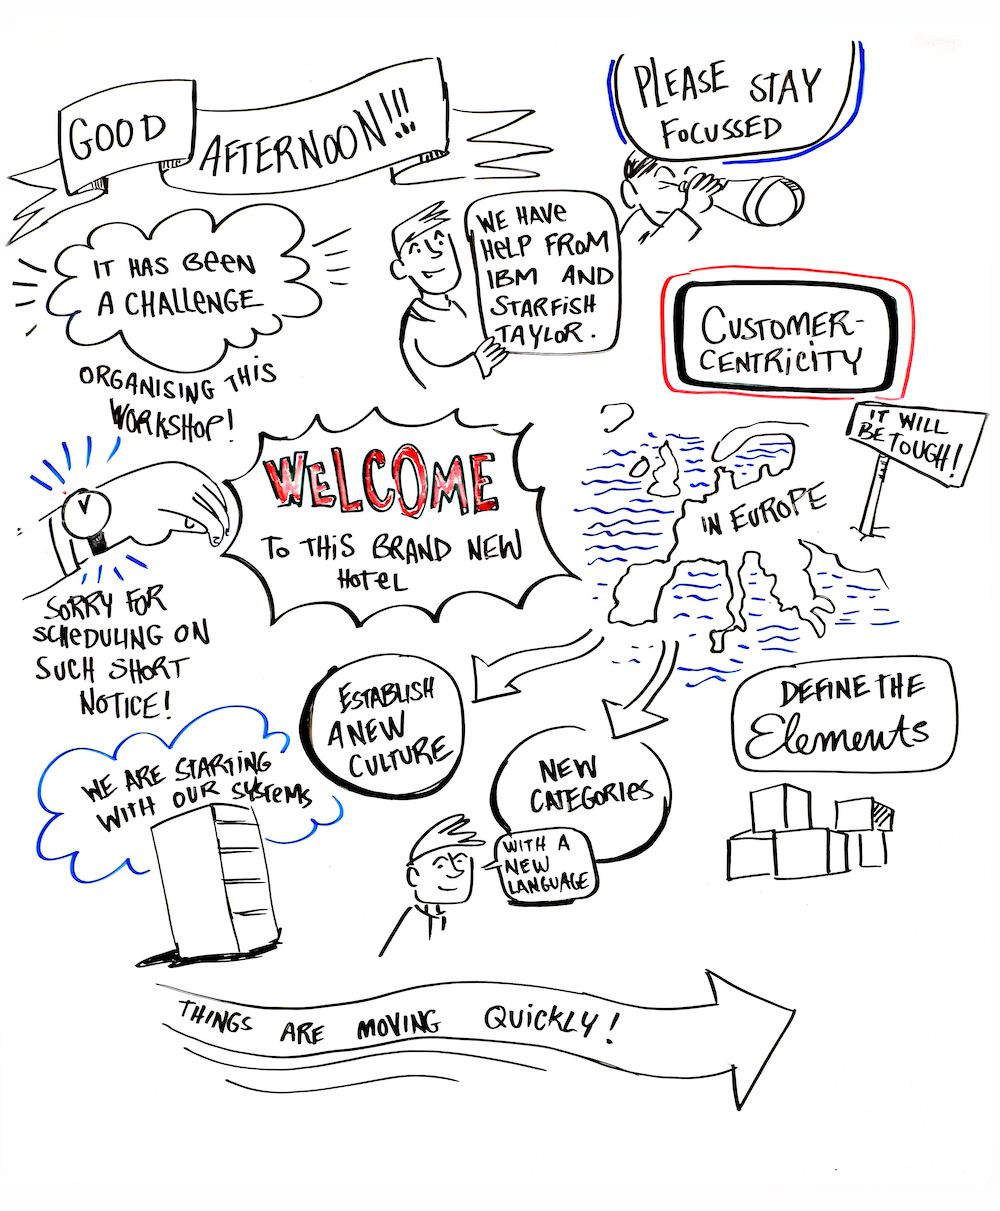 GOOD
AFTERNOON!!!
PLEASE STAY
FOCUSSED
IT HAS BEEN
A CHALLENGE
ORGANISING THIS
WORKSHOP!
WE HAVE
HELP FROM
IBM AND
STARFISH
TAYLOR.
CUSTOMER-
CENTRICITY
IT WILL
BE TOUGH!
IN EUROPE
WELCOME
TO THIS BRAND NEW
HOTEL
SORRY FOR
SCHEDULING ON
SUCH SHORT
NOTICE!
ESTABLISH
A NEW
CULTURE
NEW
CATEGORIES
WITH A
NEW
LANGUAGE
DEFINE THE
Elements
WE ARE STARTING
WITH OUR SYSTEMS
THINGS ARE MOVING QUICKLY!